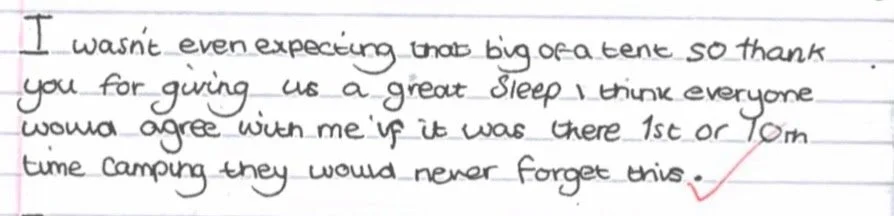 I wasn't even expecting that big of a tent so thank
you for giving us a great Sleep I think everyone
would agree with me if it was there 1st or 10th
time camping they would never forget this.